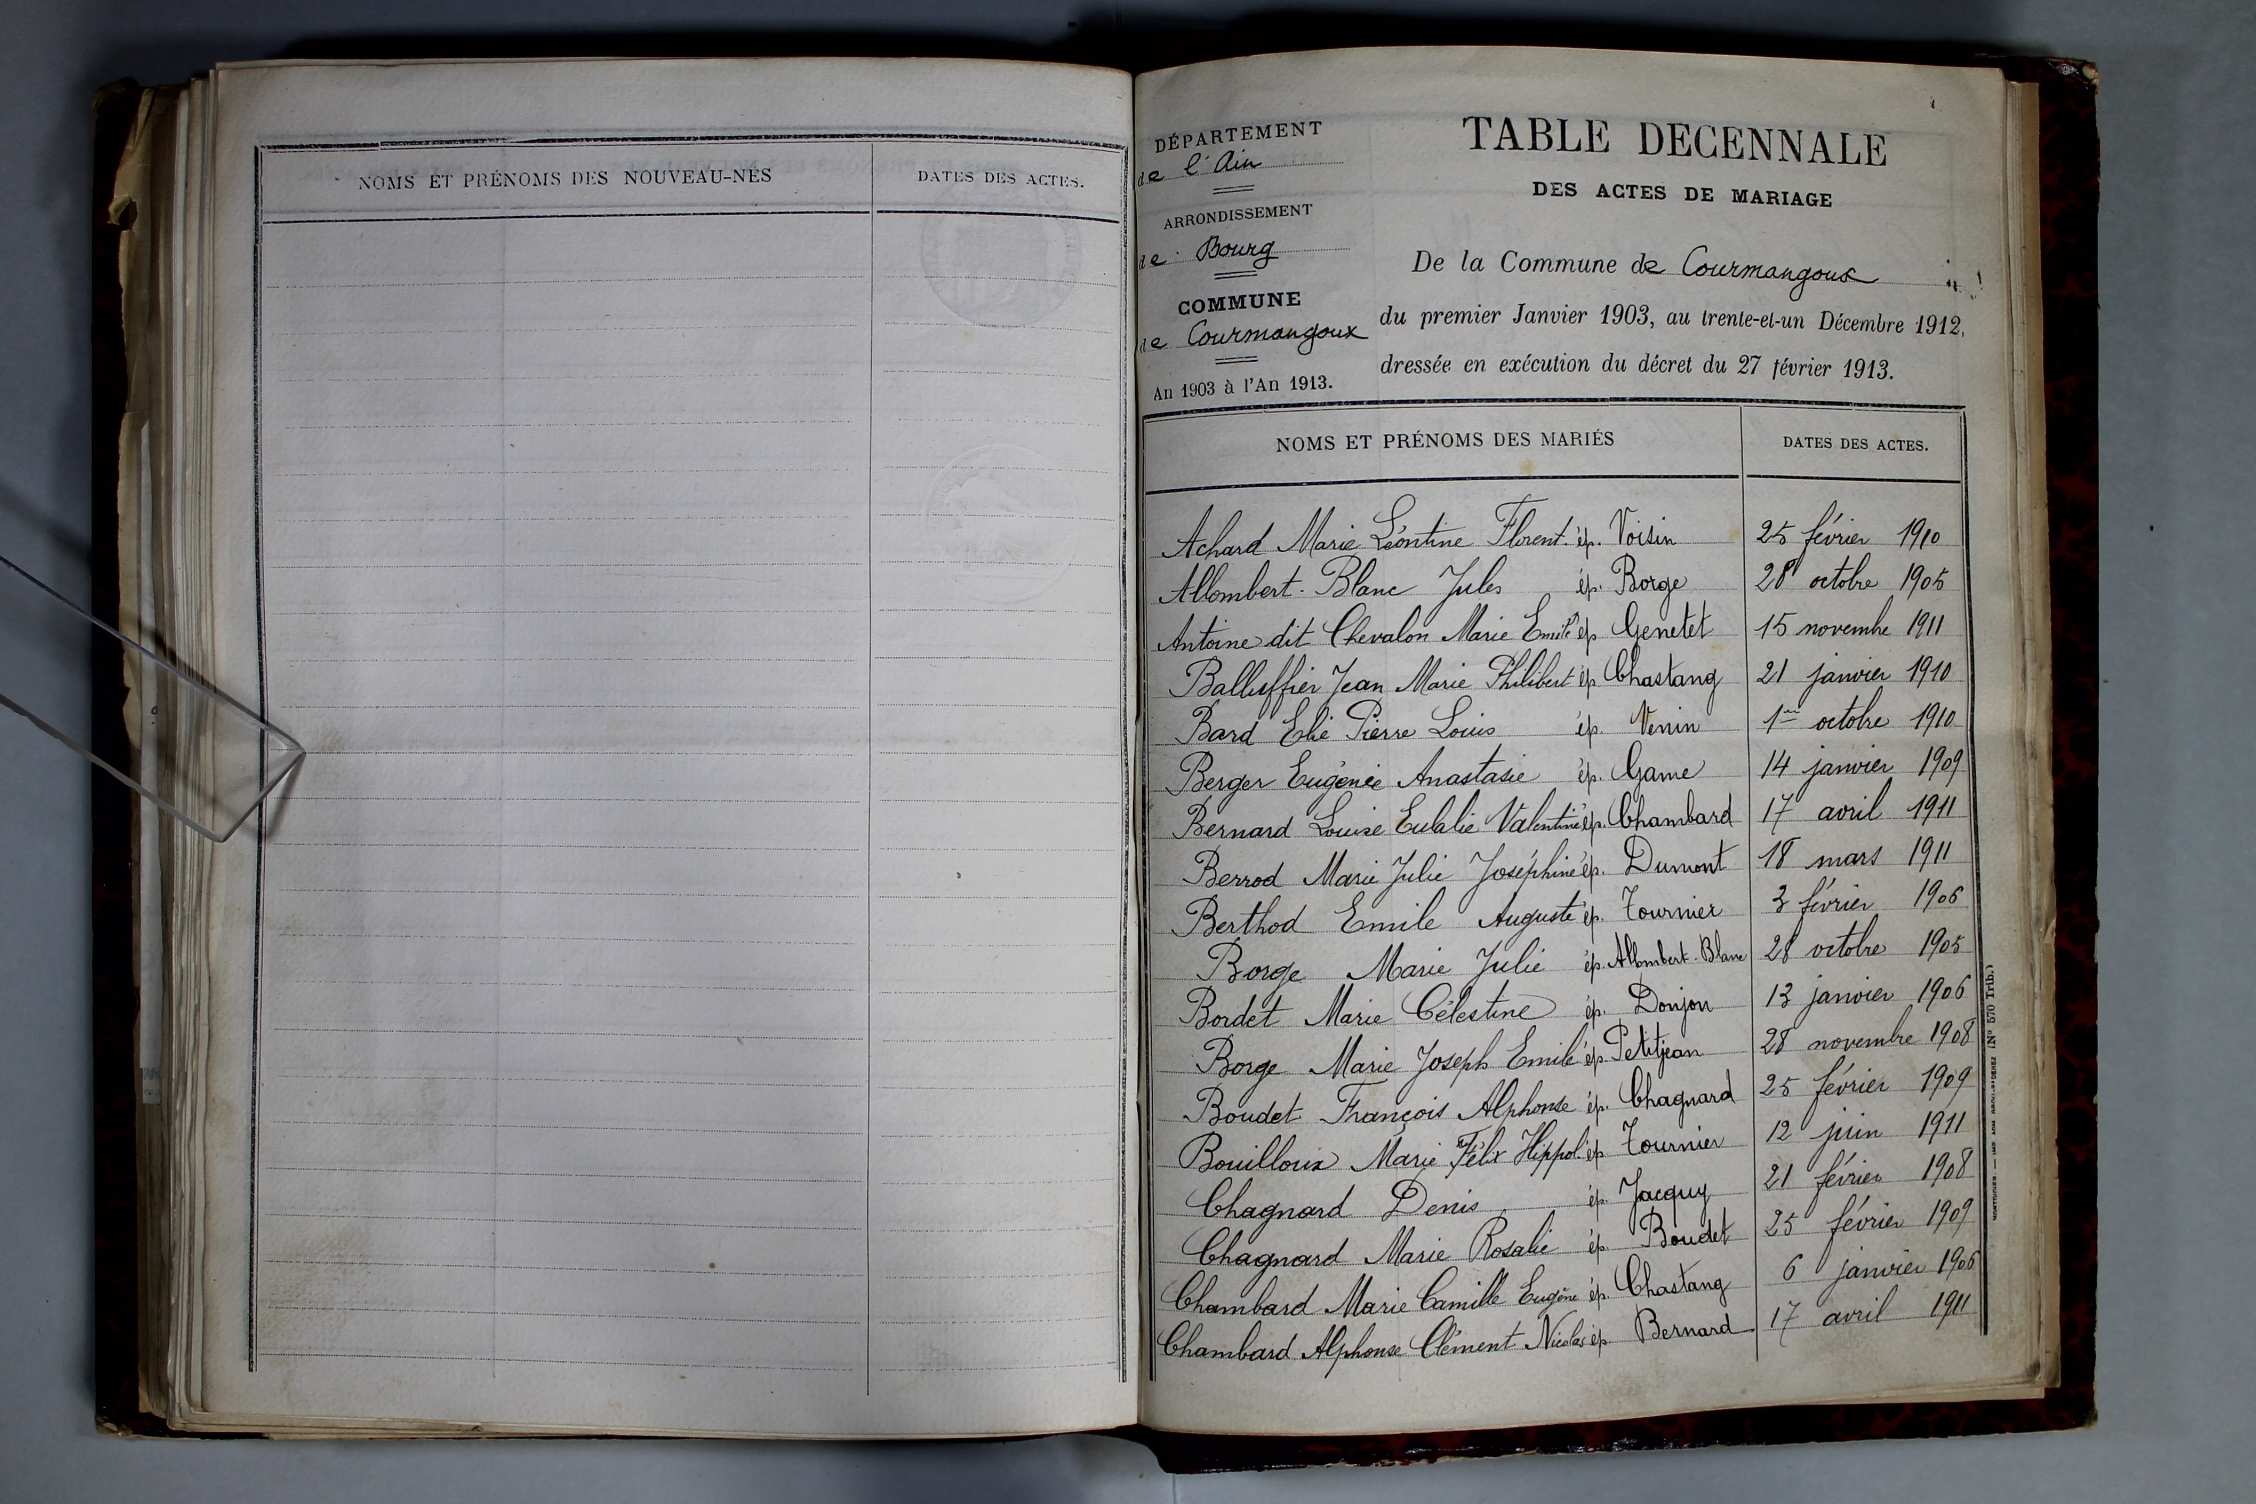 NOMS ET PRÉNOMS DES NOUVEAU-NÉS
DATES DES ACTES.
DÉPARTEMENT
de l'Ain
ARRONDISSEMENT
de Bourg
COMMUNE
de Courmangoux
An 1903 à l'An 1913.
TABLE DECENNALE
DES ACTES DE MARIAGE
De la Commune de Courmangoux
du premier Janvier 1903, au trente-et-un Décembre 1912,
dressée en exécution du décret du 27 février 1913.
NOMS ET PRÉNOMS DES MARIÉS
DATES DES ACTES.
Achard Marie Léontine Florent. ép. Voisin 25 février 1910
Allombert-Blanc Jules ép. Borge 28 octobre 1905
Antoine dit Chevalon Marie Emile ép Genetet 15 novembre 1911
Balluffier Jean Marie Philibert ép Chastang 21 janvier 1910
Bard Elie Pierre Louis ép. 1er octobre 1910
Berger Eugénie Anastasie ép. Game 14 janvier 1909
Bernard Louise Eulalie Valentine ép. Chambard 17 avril 1911
Berrod Marie Julie Joséphine ép. Dumont 18 mars 1911
Berthod Emile Auguste ép. Tournier 3 février 1906
Borge Marie Julie ép. Allombert-Blanc 28 octobre 1905
Bordet Marie Célestine ép. Donjon 13 janvier 1906
Borge Marie Joseph Emile ép Petitjean 28 novembre 1908
Boudet François Alphonse ép. Chagnard 25 février 1909
Bouilloux Marie Félix Hippol. ép Tournier 12 juin 1911
Chagnard Denis ép. Jacquy 21 février 1908
Chagnard Marie Rosalie ép. Boudet 25 février 1909
Chambard Marie Camille Eugène ép. Chastang 6 janvier 1906
Chambard Alphonse Clément Nicolas ép Bernard 17 avril 1911
(Nº 570 Trib.)